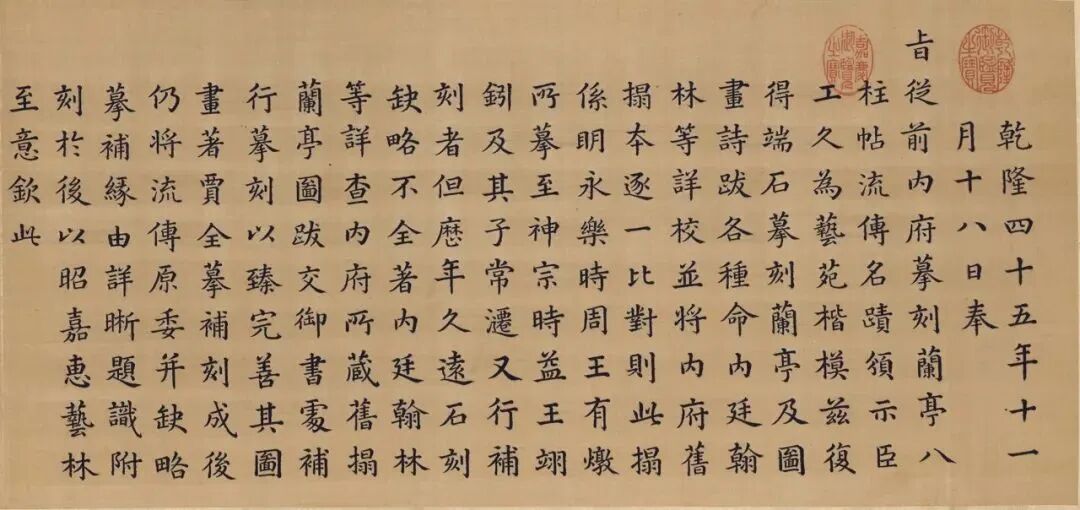 乾隆御覽之寶
乾隆四十五年十一
月十八日奉
旨從前内府摹刻蘭亭八
柱帖流傳名蹟頒示臣
嘉慶御覽之寶
工久為藝苑楷模兹復
得端石摹刻蘭亭及圖
畫詩跋各種命内廷翰
林等詳校並將内府舊
搨本逐一比對則此搨
係明永樂時周王有燉
所摹至神宗時益王翊
鈏及其子常遷又行補
刻者但歷年久遠石刻
缺略不全著内廷翰林
等詳查内府所藏舊搨
蘭亭圖跋交御書處補
行摹刻以臻完善其圖
畫著賈全摹補刻成後
仍將流傳原委并缺略
摹補緣由詳晰題識附
刻於後以昭嘉惠藝林
至意欽此